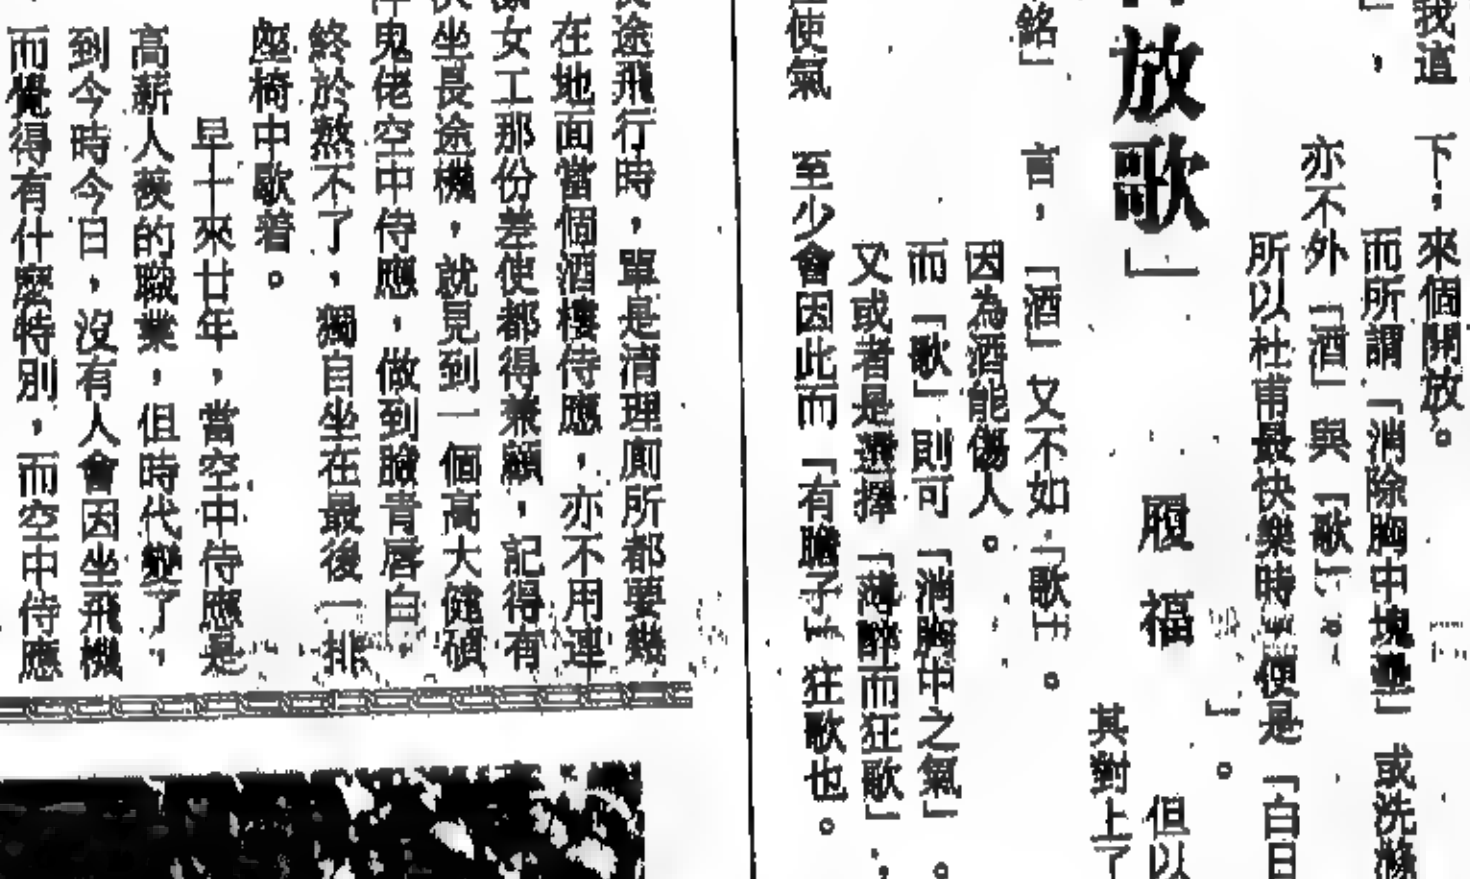 我這　下，來個開放。
而所謂「消除胸中塊壘」或洗滌
亦不外「酒」與「歌」，
所以杜甫最快樂時，便是「白日
放歌」
」。
履福
但以
其對上了
銘」　言，「酒」又不如「歌」。
因為酒能傷人。
而「歌」則可「消胸中之氣」。
又或者是選擇「薄醉而狂歌」，
使氣　至少會因此而「有膽子」狂歌也。
長途飛行時，單是清理廁所都要幾
在地面當個酒樓侍應，亦不用連
女工那份差使都得兼顧，記得有
坐長途機，就見到一個高大健碩
洋鬼佬空中侍應，做到臉青唇白，
終於熬不了，獨自坐在最後一排
座椅中歇着。
早十來廿年，當空中侍應是
高薪人羨的職業，但時代變了，
到今時今日，沒有人會因坐飛機
而覺得有什麼特別，而空中侍應